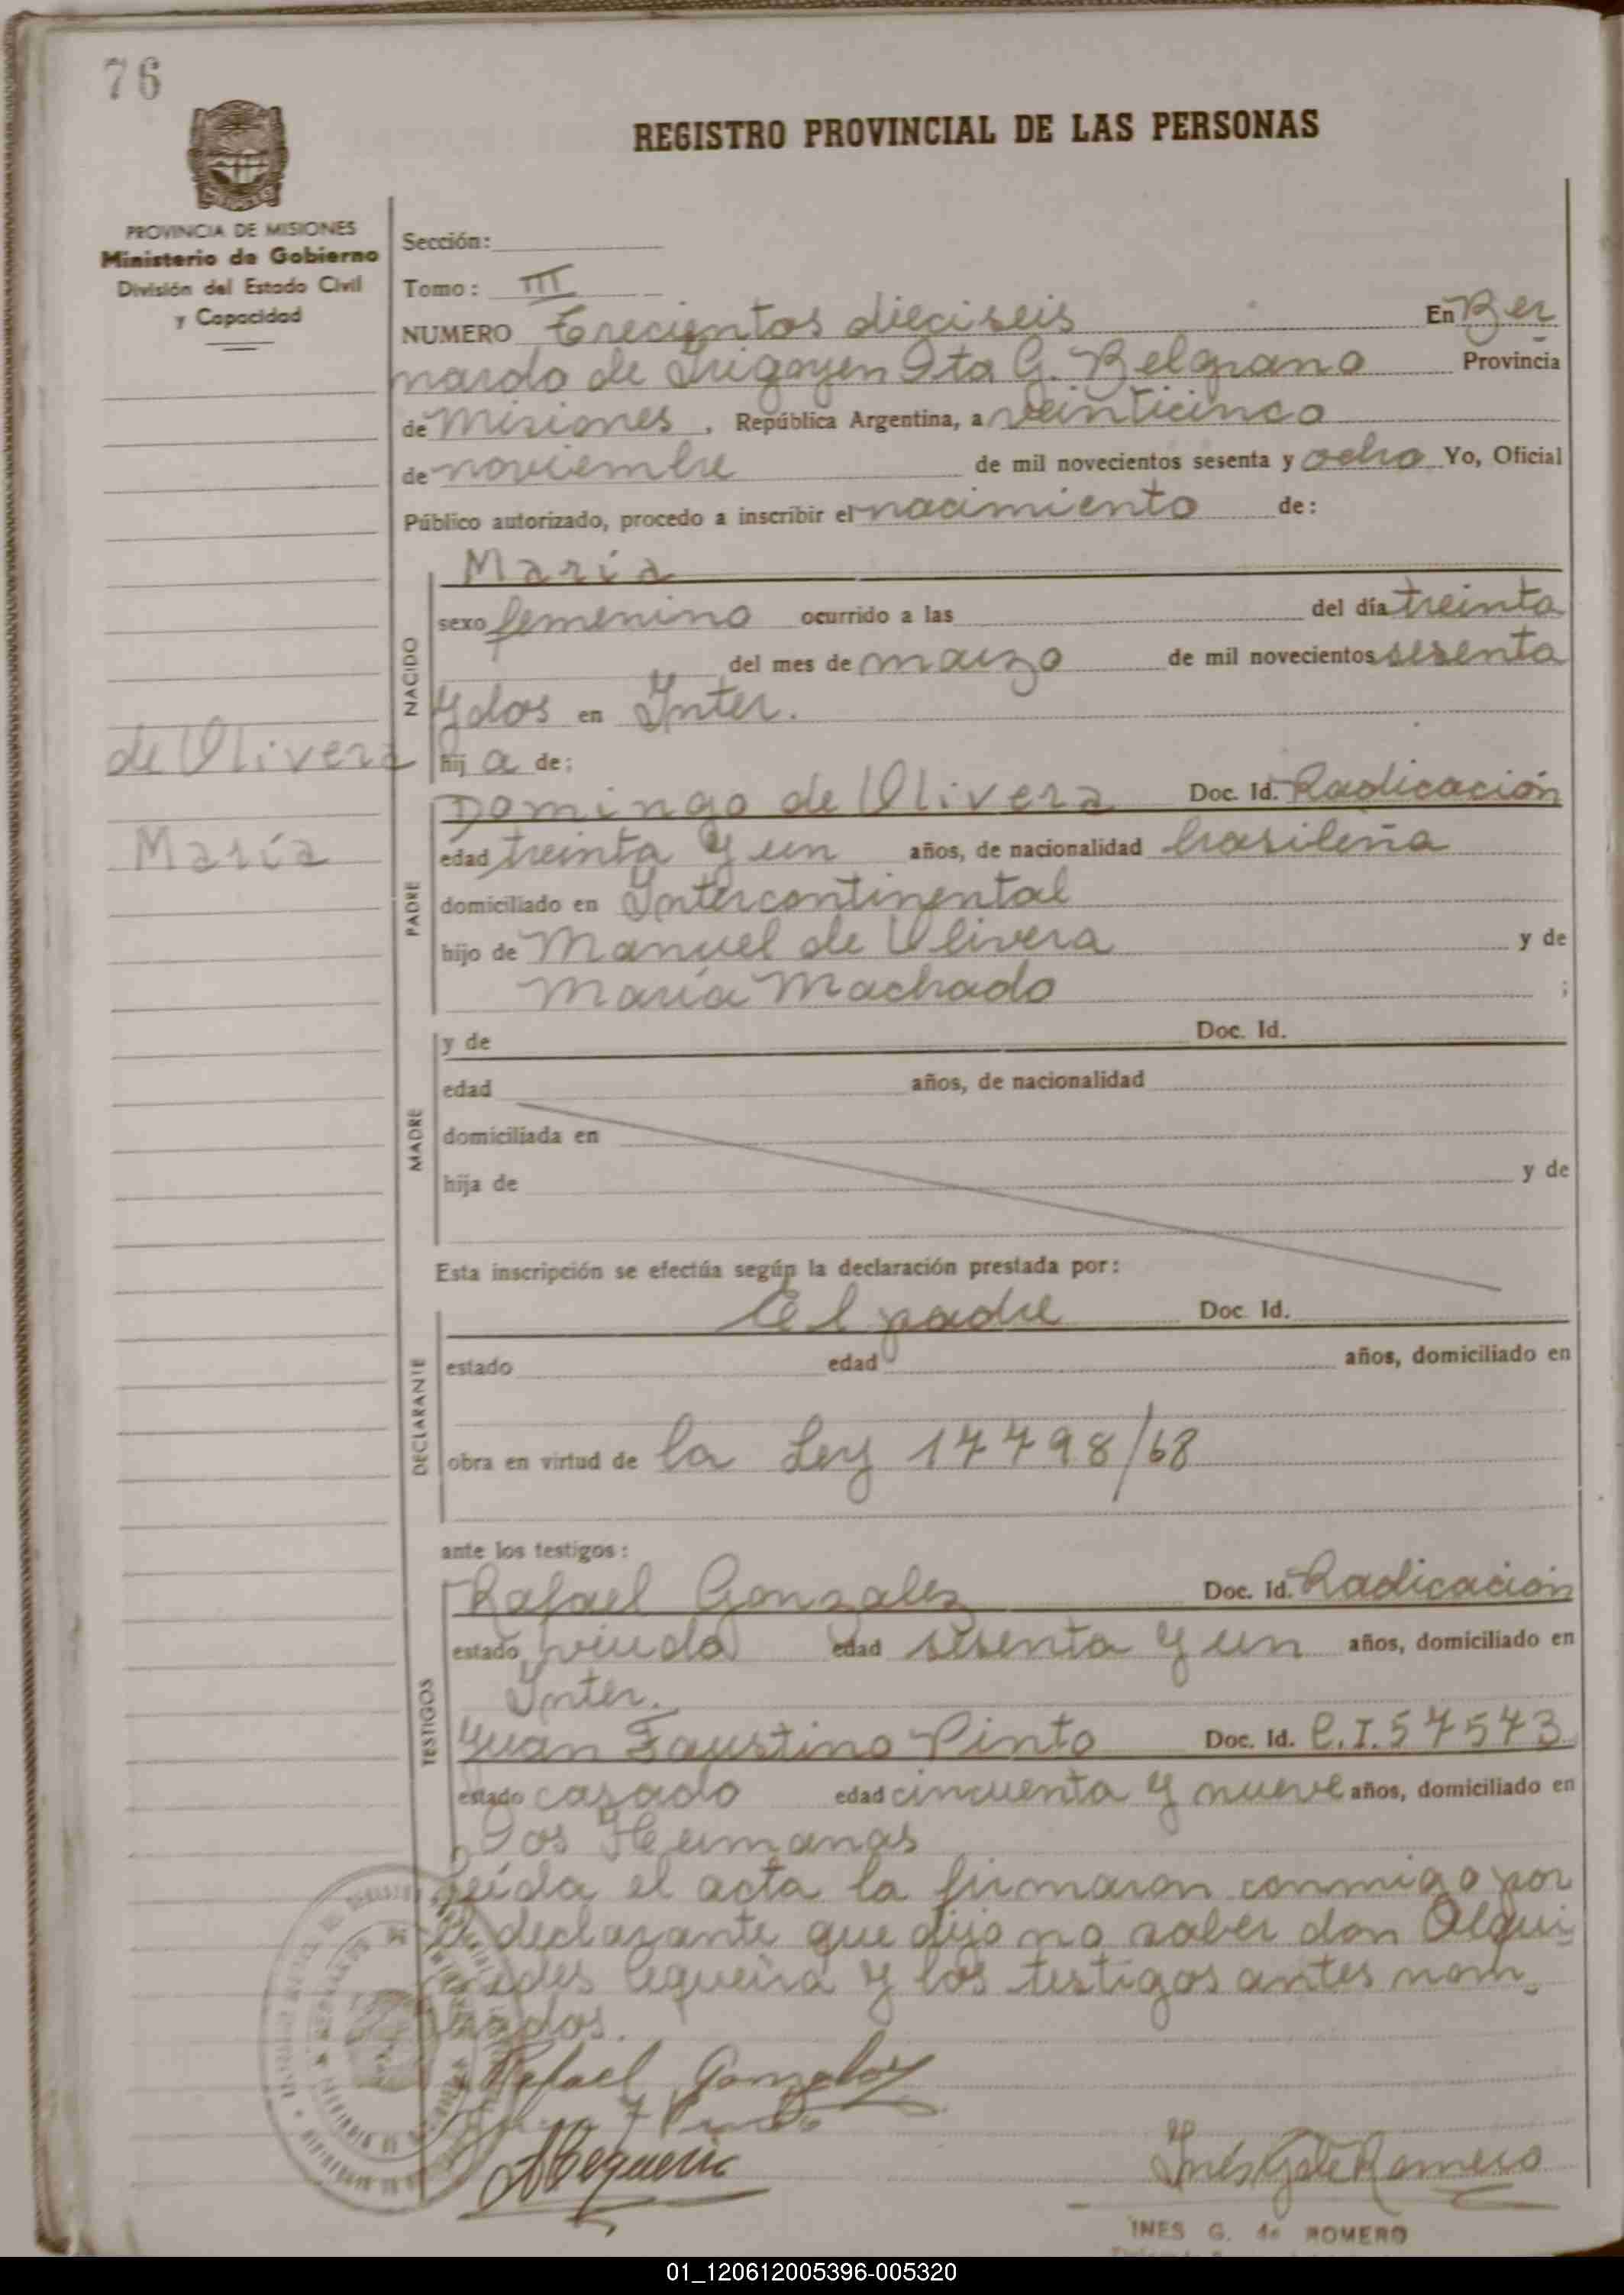 76
REGISTRO PROVINCIAL DE LAS PERSONAS
PROVINCIA DE MISIONES
Ministerio de Gobierno
División del Estado Civil
y Capacidad
Sección:
Tomo: III
NUMERO Trecientos dieciseis En Ber
nardo de Irigoyen Dto G. Belgrano Provincia
de Misiones, República Argentina, a veinticinco
de noviembre de mil novecientos sesenta y ocho Yo, Oficial
Público autorizado, procedo a inscribir el nacimiento de:
María
NACIDO
sexo femenino ocurrido a las del día treinta
del mes de marzo de mil novecientos sesenta
y dos en Inter.
de Olivera
hij a de:
Domingo de Olivera Doc. Id. Radicación
María
PADRE
edad treinta y un años, de nacionalidad brasileña
domiciliado en Intercontinental
hijo de Manuel de Olivera y de
María Machado ;
MADRE
y de Doc. Id.
edad años, de nacionalidad
domiciliada en
hija de y de
Esta inscripción se efectúa según la declaración prestada por:
DECLARANTE
El padre Doc. Id.
estado edad años, domiciliado en
obra en virtud de la Ley 17798/68
ante los testigos:
TESTIGOS
Rafael Gonzalez Doc. Id. Radicación
estado viudo edad sesenta y un años, domiciliado en
Inter.
Juan Faustino Pinto Doc. Id. C.I. 57573
estado casado edad cincuenta y nueve años, domiciliado en
Dos Hermanas
leída el acta la firmaron conmigo por
el declarante que dijo no saber don
y los testigos antes nom
brados.
Rafael Gonzalez
Inés G de Romero
INES G. de ROMERO
01_120612005396-005320